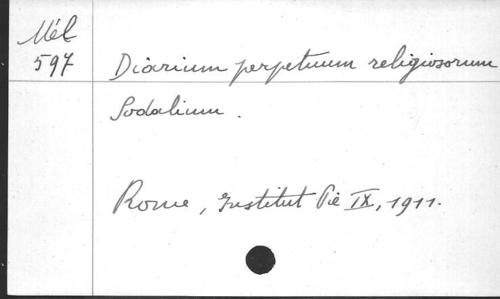 Mél
597
Diarium perpetuum religiosorum
Sodalium.
Rome, Institut Pie IX, 1911.